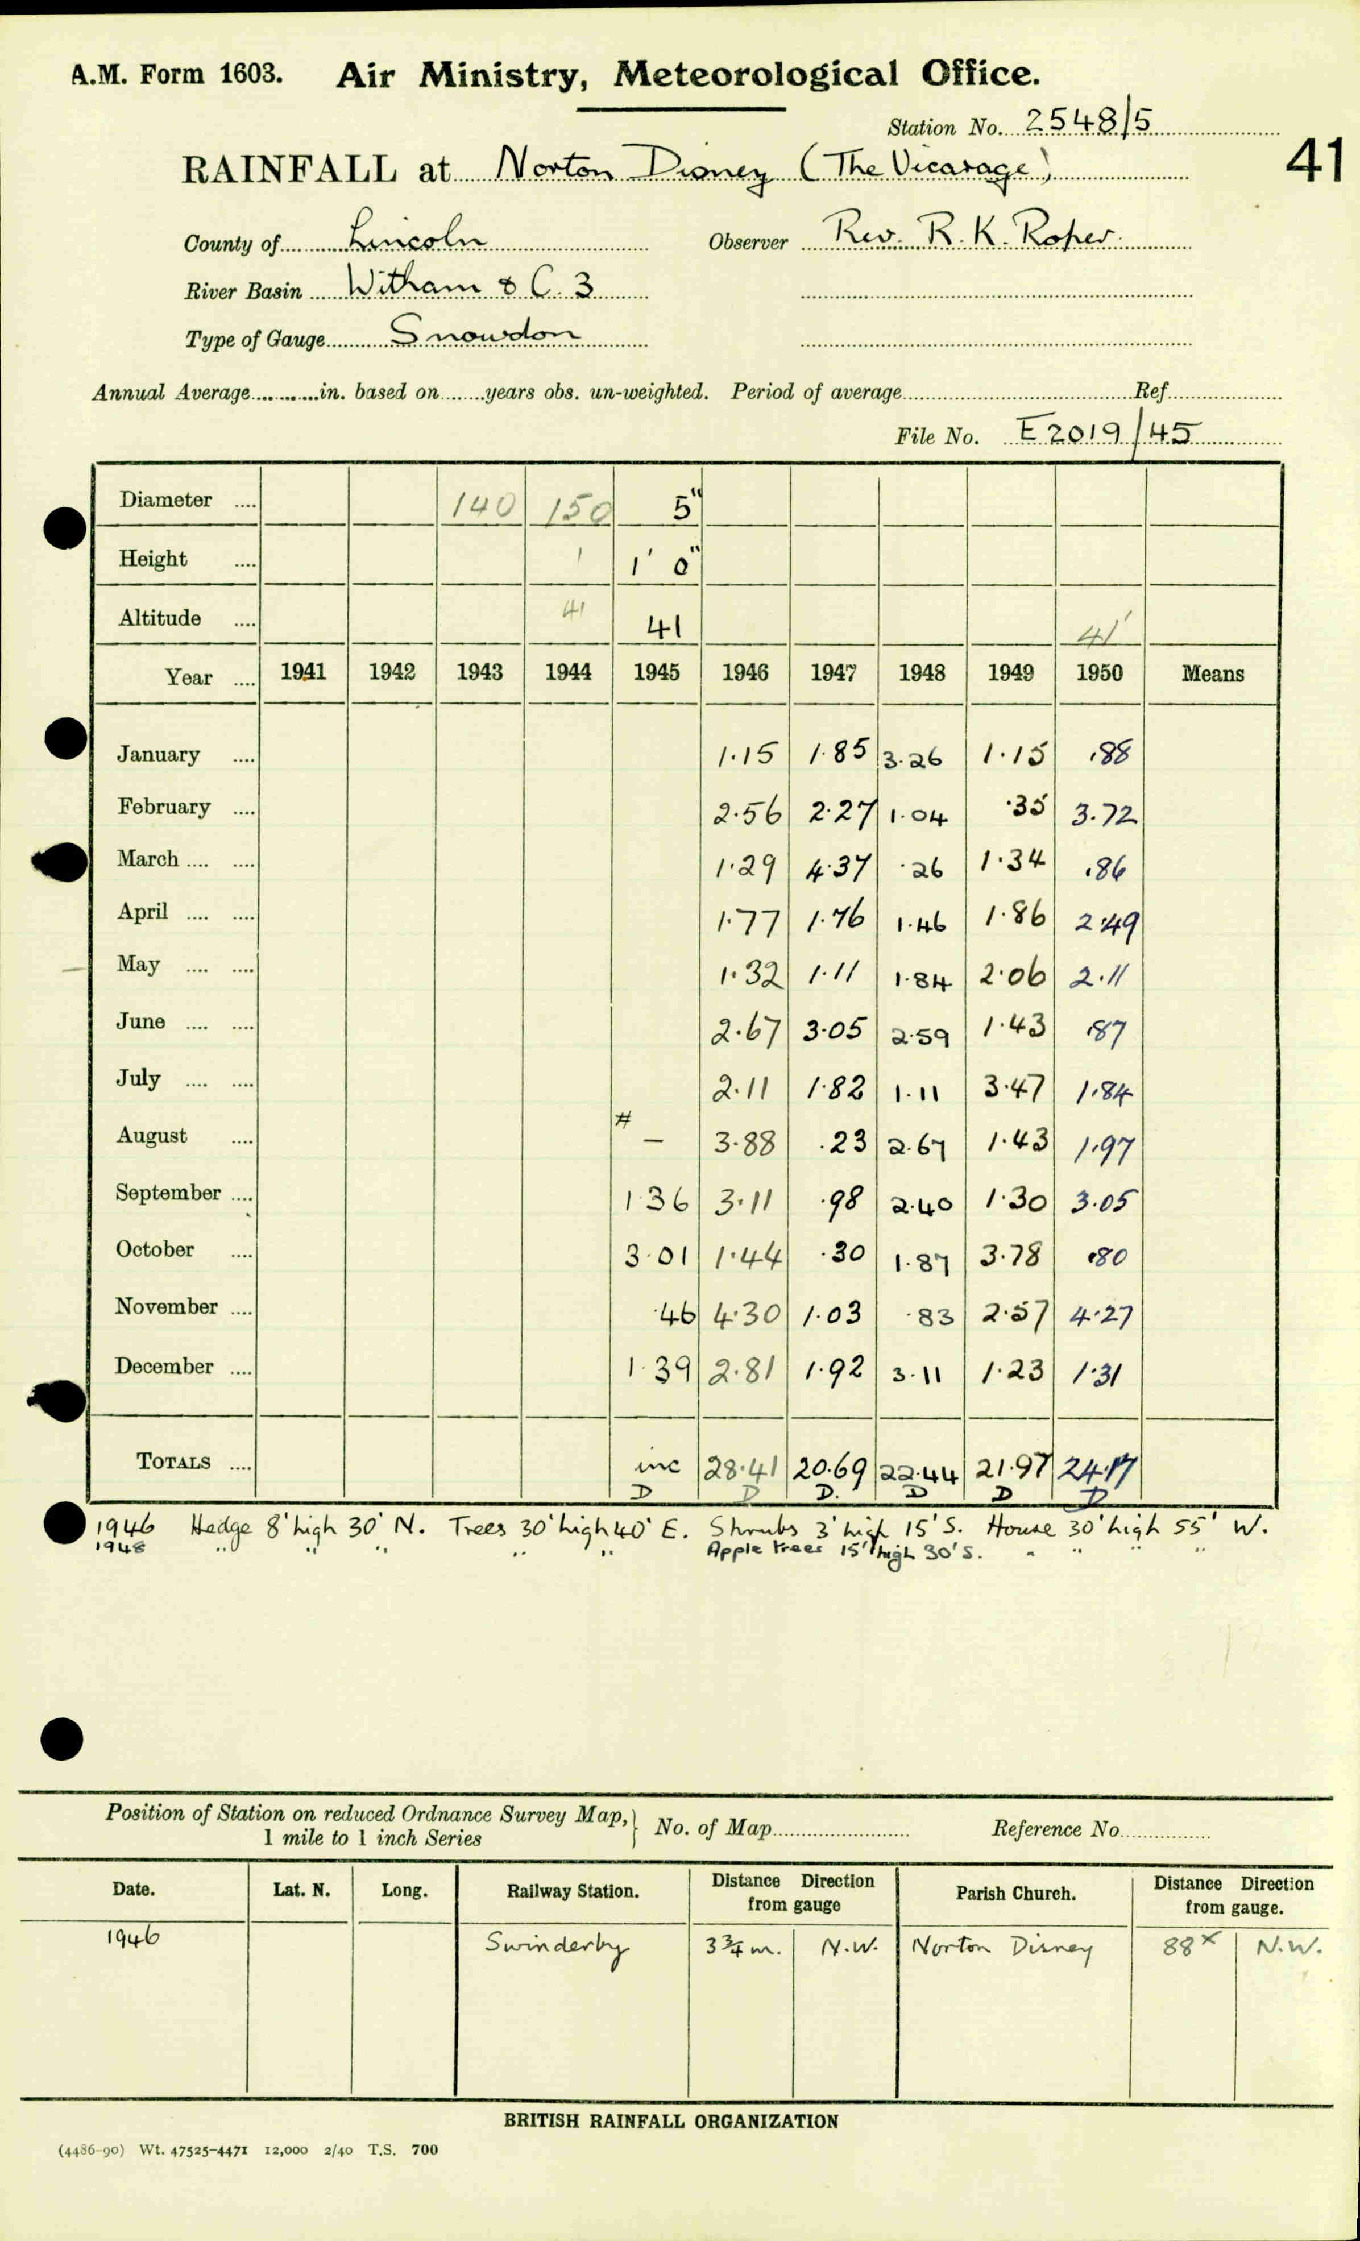 A.M. Form 1603. Air Ministry, Meteorological Office.
Station No. 2548/5
41
RAINFALL at Norton Disney (The Vicarage)
County of Lincoln Observer Rev. R. K. Roper.
River Basin Witham & C. 3
Type of Gauge Snowdon
Annual Average............in. based on.......years obs. un-weighted. Period of average........ Ref........
File No. E2019/45
Diameter .... 140 150 5"
Height .... 1 1' 0"
Altitude .... 41 41 41'
Year .... 1941 1942 1943 1944 1945 1946 1947 1948 1949 1950 Means
January .... 1.15 1.85 3.26 1.15 .88
February .... 2.56 2.27 1.04 .35 3.72
March .... .... 1.29 4.37 .26 1.34 .86
April .... .... 1.77 1.76 1.46 1.86 2.49
May .... .... 1.32 1.11 1.84 2.06 2.11
June .... .... 2.67 3.05 2.59 1.43 .87
July .... .... 2.11 1.82 1.11 3.47 1.84
August .... # — 3.88 .23 2.67 1.43 1.97
September .... 1.36 3.11 .98 2.40 1.30 3.05
October .... 3.01 1.44 .30 1.87 3.78 .80
November .... .46 4.30 1.03 .83 2.57 4.27
December .... 1.39 2.81 1.92 3.11 1.23 1.31
TOTALS .... inc 28.41 20.69 22.44 21.97 24.17
D D D. D D D
1946 Hedge 8' high 30' N. Trees 30' high 40' E. Shrubs 3' high 15' S. House 30' high 55' W.
1948 " " " " " Apple trees 15' high 30' S. " " " "
Position of Station on reduced Ordnance Survey Map, } No. of Map........ Reference No........
1 mile to 1 inch Series
Date. Lat. N. Long. Railway Station. Distance Direction from gauge Parish Church. Distance Direction from gauge.
1946 Swinderby 3¾ m. N.W. Norton Disney 88ˣ N.W.
BRITISH RAINFALL ORGANIZATION
(4486-90) Wt. 47525-4471 12,000 2/40 T.S. 700